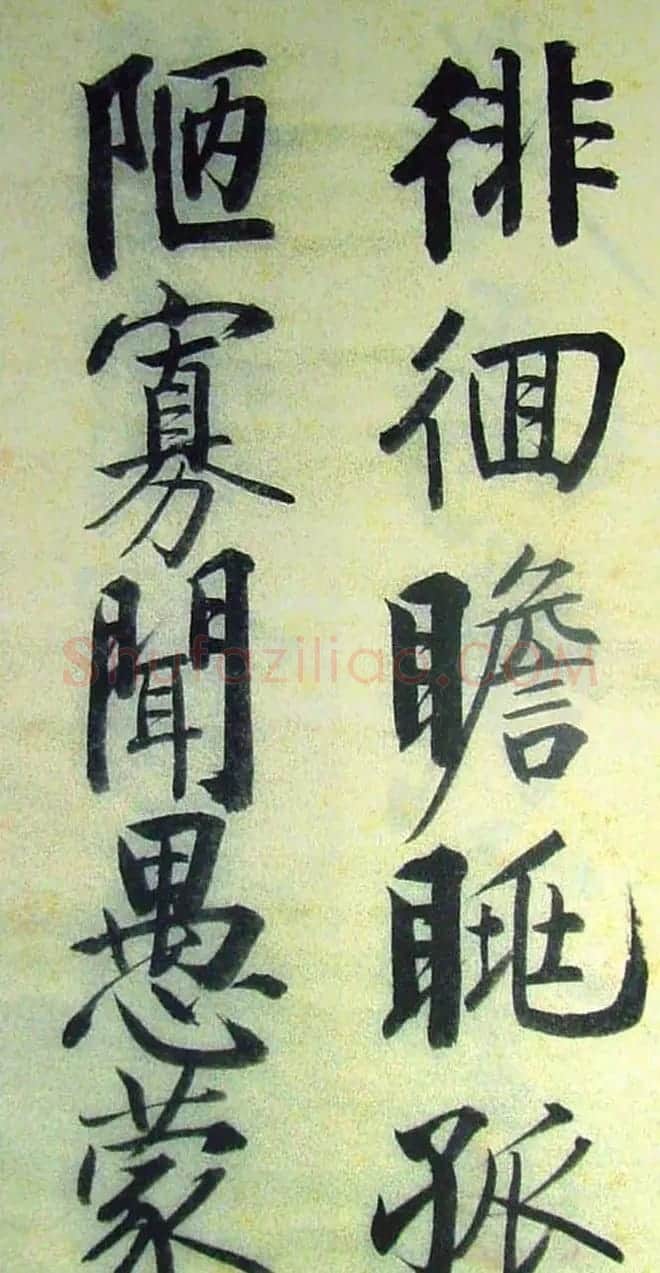 徘徊瞻眺孤
陋寡聞愚蒙
Shufaziliao.COM